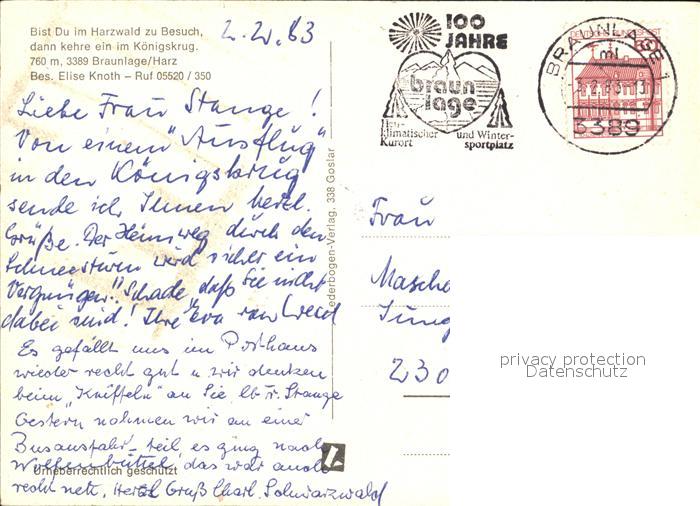 Bist Du im Harzwald zu Besuch,
dann kehre ein im Königskrug.
760 m, 3389 Braunlage/Harz
Bes. Elise Knoth – Ruf 05520 / 350
2.2.83
Liebe Frau Stange!
Von einem "Ausflug"
in den Königskrug
sende ich Ihnen herzl.
Grüße. Der Heimweg durch den
Schneesturm wird sicher ein
Vergnügen! Schade, daß Sie nicht
dabei sind! Ihre Eva van
Es gefällt uns im Posthaus
wieder recht gut u. wir denken
beim "Kniffeln" an Sie, lb. Fr. Stange
Gestern nahmen wir an einer
Busausfahr- teil, es ging nach
Wolfenbüttel, das war auch
recht nett. Herzl. Gruß Charl. Schwarzwald
Urheberrechtlich geschützt
ederbogen-Verlag, 338 Goslar
100
JAHRE
braun
lage
Heil-
klimatischer
Kurort
und Winter-
sportplatz
BRAUNLAGE 1
3389
Frau
Masche
Jung
230
privacy protection
Datenschutz